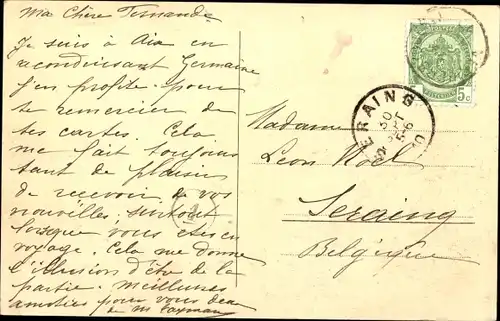 Ma Chère Fernande
Je suis à Aix en
reconduisant Germaine
j'en profite pour
te remercier de
tes cartes. Cela
me fait toujours
tant de plaisir
de recevoir de vos
nouvelles, surtout
lorsque vous êtes en
voyage. Cela me donne
l'illusion d'être de la
partie. Meilleures
amitiés pour vous deux
de M
Madame
Leon Noël
Seraing
Belgique
SERAING
30
SEPT
5-6
5c